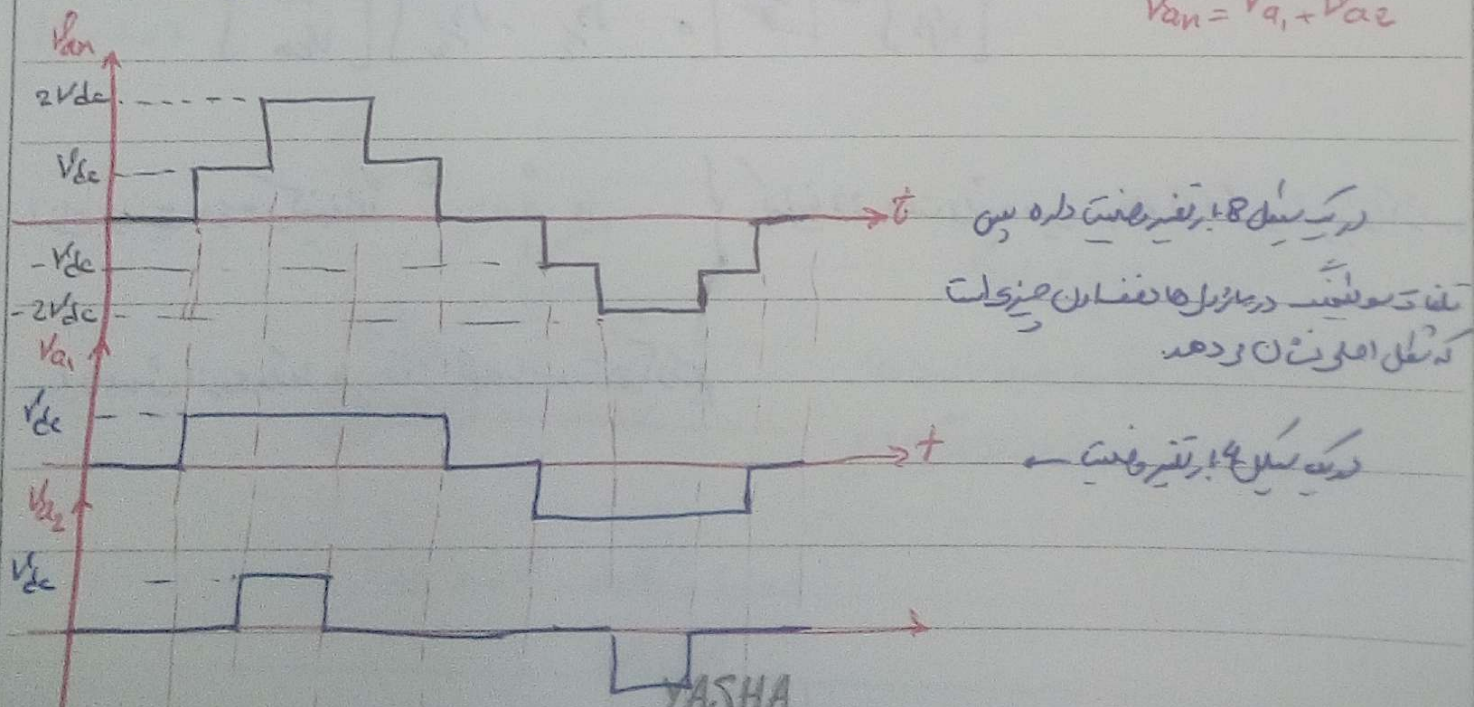 Van = Va1 + Va2
Van
2Vdc
Vdc
-Vdc
-2Vdc
t
در یک سیکل 8 بار تغییر وضعیت داره پس
تلفات سوئیچینگ در ماژول ها نصف اون چیزی است
که شکل اصلی نشان می دهد.
Va1
Vdc
t
در یک سیکل 4 بار تغییر وضعیت ←
Va2
Vdc
YASHA